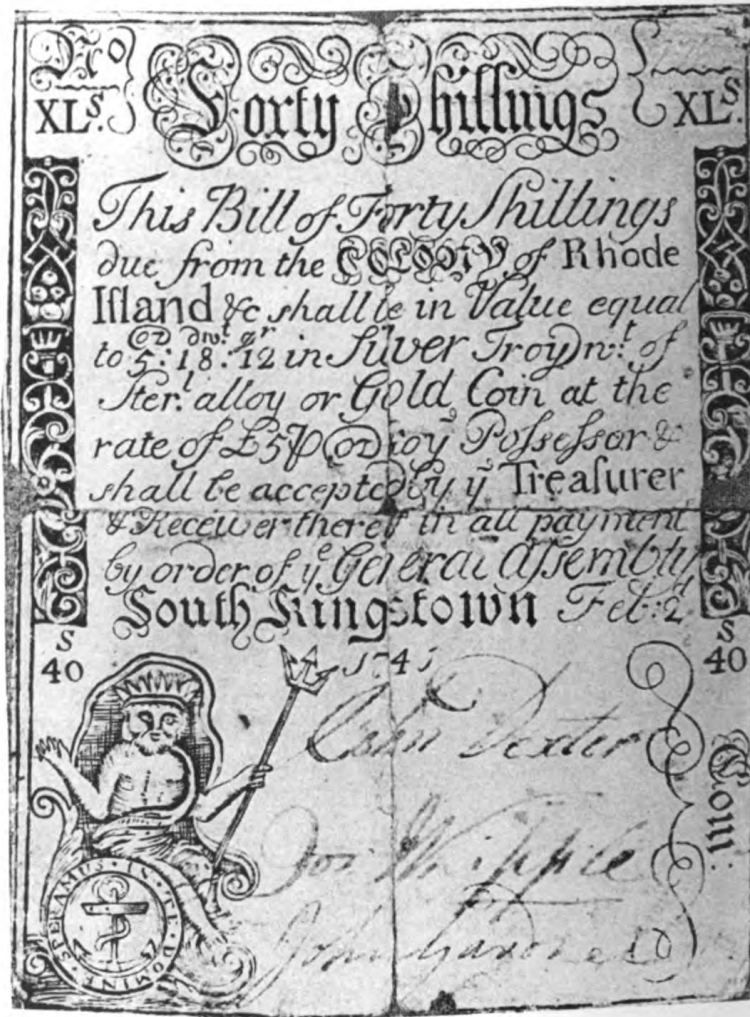 No
XLS. Forty Shillings XLS.
This Bill of Forty Shillings
due from the COLONY of Rhode
Island &c shall be in Value equal
oz dwt gr
to 5:18:12 in Silver Troy wt. of
Ster.l alloy or Gold Coin at the
rate of £5 ⅌ oz to ye Possessor &
shall be accepted by ye Treasurer
& Receiver thereof in all payment
by order of ye General Assembly
South Kingstown Feb: 2d
S
40
S
40
174
John Dexter
Com.
Jos Whipple
John Gardner
SPERAMUS · IN · TE · DOMINE